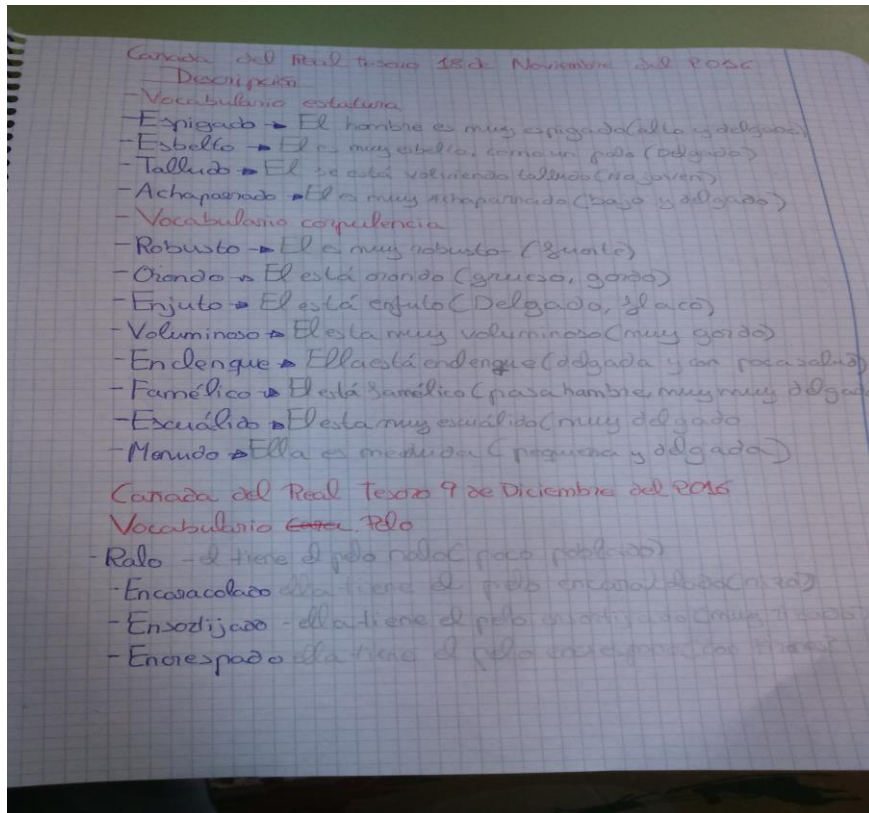 Canada del Real tesoro 18 de Noviembre del 2016
Descripción
- Vocabulario estatura
- Espigado → El hombre es muy espigado (alto y delgado)
- Esbelto → El es muy esbelto, como un palo (Delgado)
- Talludo → El se está volviendo talludo (no joven)
- Achaparrado → El es muy achaparrado (bajo y delgado)
- Vocabulario corpulencia
- Robusto → El es muy robusto - (fuerte)
- Orondo → El está orondo (grueso, gordo)
- Enjuto → El está enjuto (Delgado, flaco)
- Voluminoso → El esta muy voluminoso (muy gordo)
- Enclenque → Ella está enclenque (delgada y con poca salud)
- Famélico → El está famélico (pasa hambre, muy muy delgado
- Escuálido → El esta muy escuálido (muy delgado
- Menudo → Ella es menuda (pequeña y delgada)
Canada del Real Tesoro 9 de Diciembre del 2016
Vocabulario Pelo
- Ralo - el tiene el pelo ralo (poco poblado)
- Encaracolado ella tiene el pelo encaracolado (rizado)
- Ensortijado - ella tiene el pelo ensortijado (muy rizado)
- Encrespado ella tiene el pelo